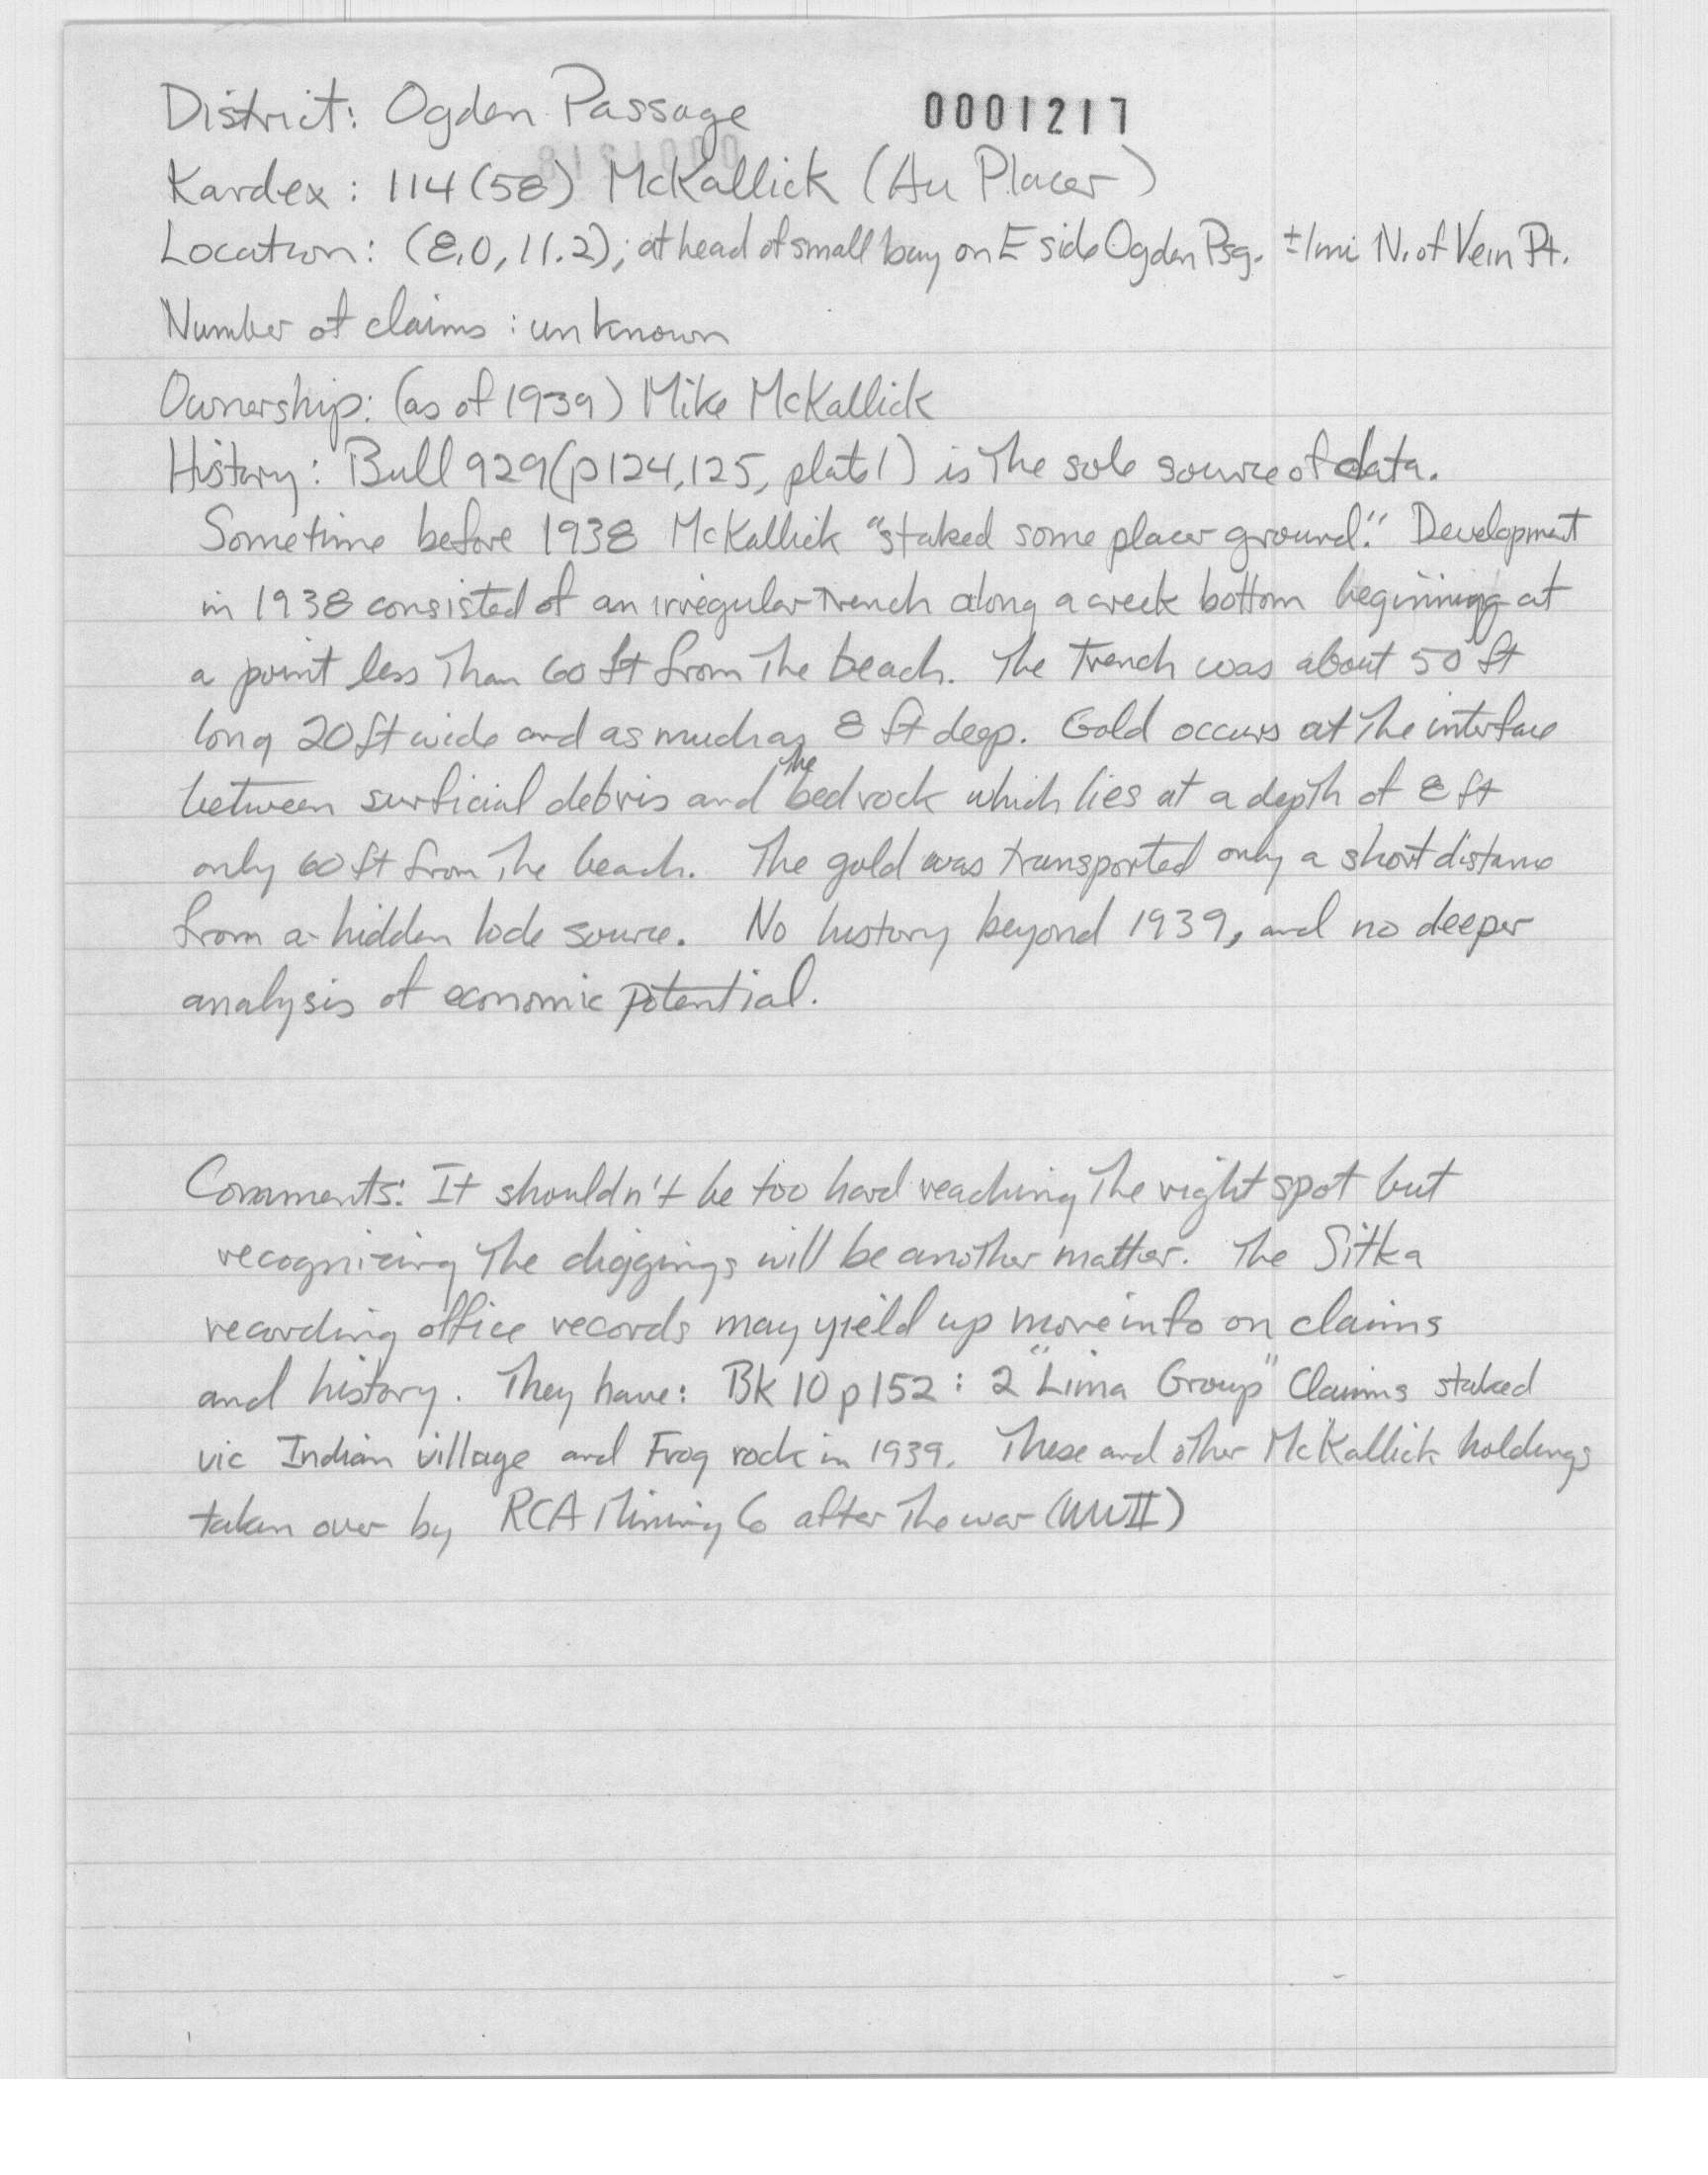 District: Ogden Passage
0001217
Kardex: 114(58) McKallick (Au Placer)
Location: (8.0, 11.2); at head of small bay on E side Ogden Psg. ±1mi N. of Vein Pt.
Number of claims: unknown
Ownership: (as of 1939) Mike McKallick
History: Bull 929(p124,125, plate1) is The sole source of data.
Sometime before 1938 McKallick "staked some placer ground." Development
in 1938 consisted of an irregular trench along a creek bottom beginning at
a point less Than 60 ft from The beach. The Trench was about 50 ft
long 20 ft wide and as much as 8 ft deep. Gold occurs at The interface
between surficial debris and the bedrock which lies at a depth of 8 ft
only 60 ft from The beach. The gold was transported only a short distance
from a hidden lode source. No history beyond 1939, and no deeper
analysis of economic potential.
Comments: It shouldn't be too hard reaching The right spot but
recognizing The diggings will be another matter. The Sitka
recording office records may yield up more info on claims
and history. They have: Bk 10 p152: 2 "Lima Group" Claims staked
vic Indian village and Frog rock in 1939. These and other McKallick holdings
taken over by RCA Mining Co after The war (WWII)